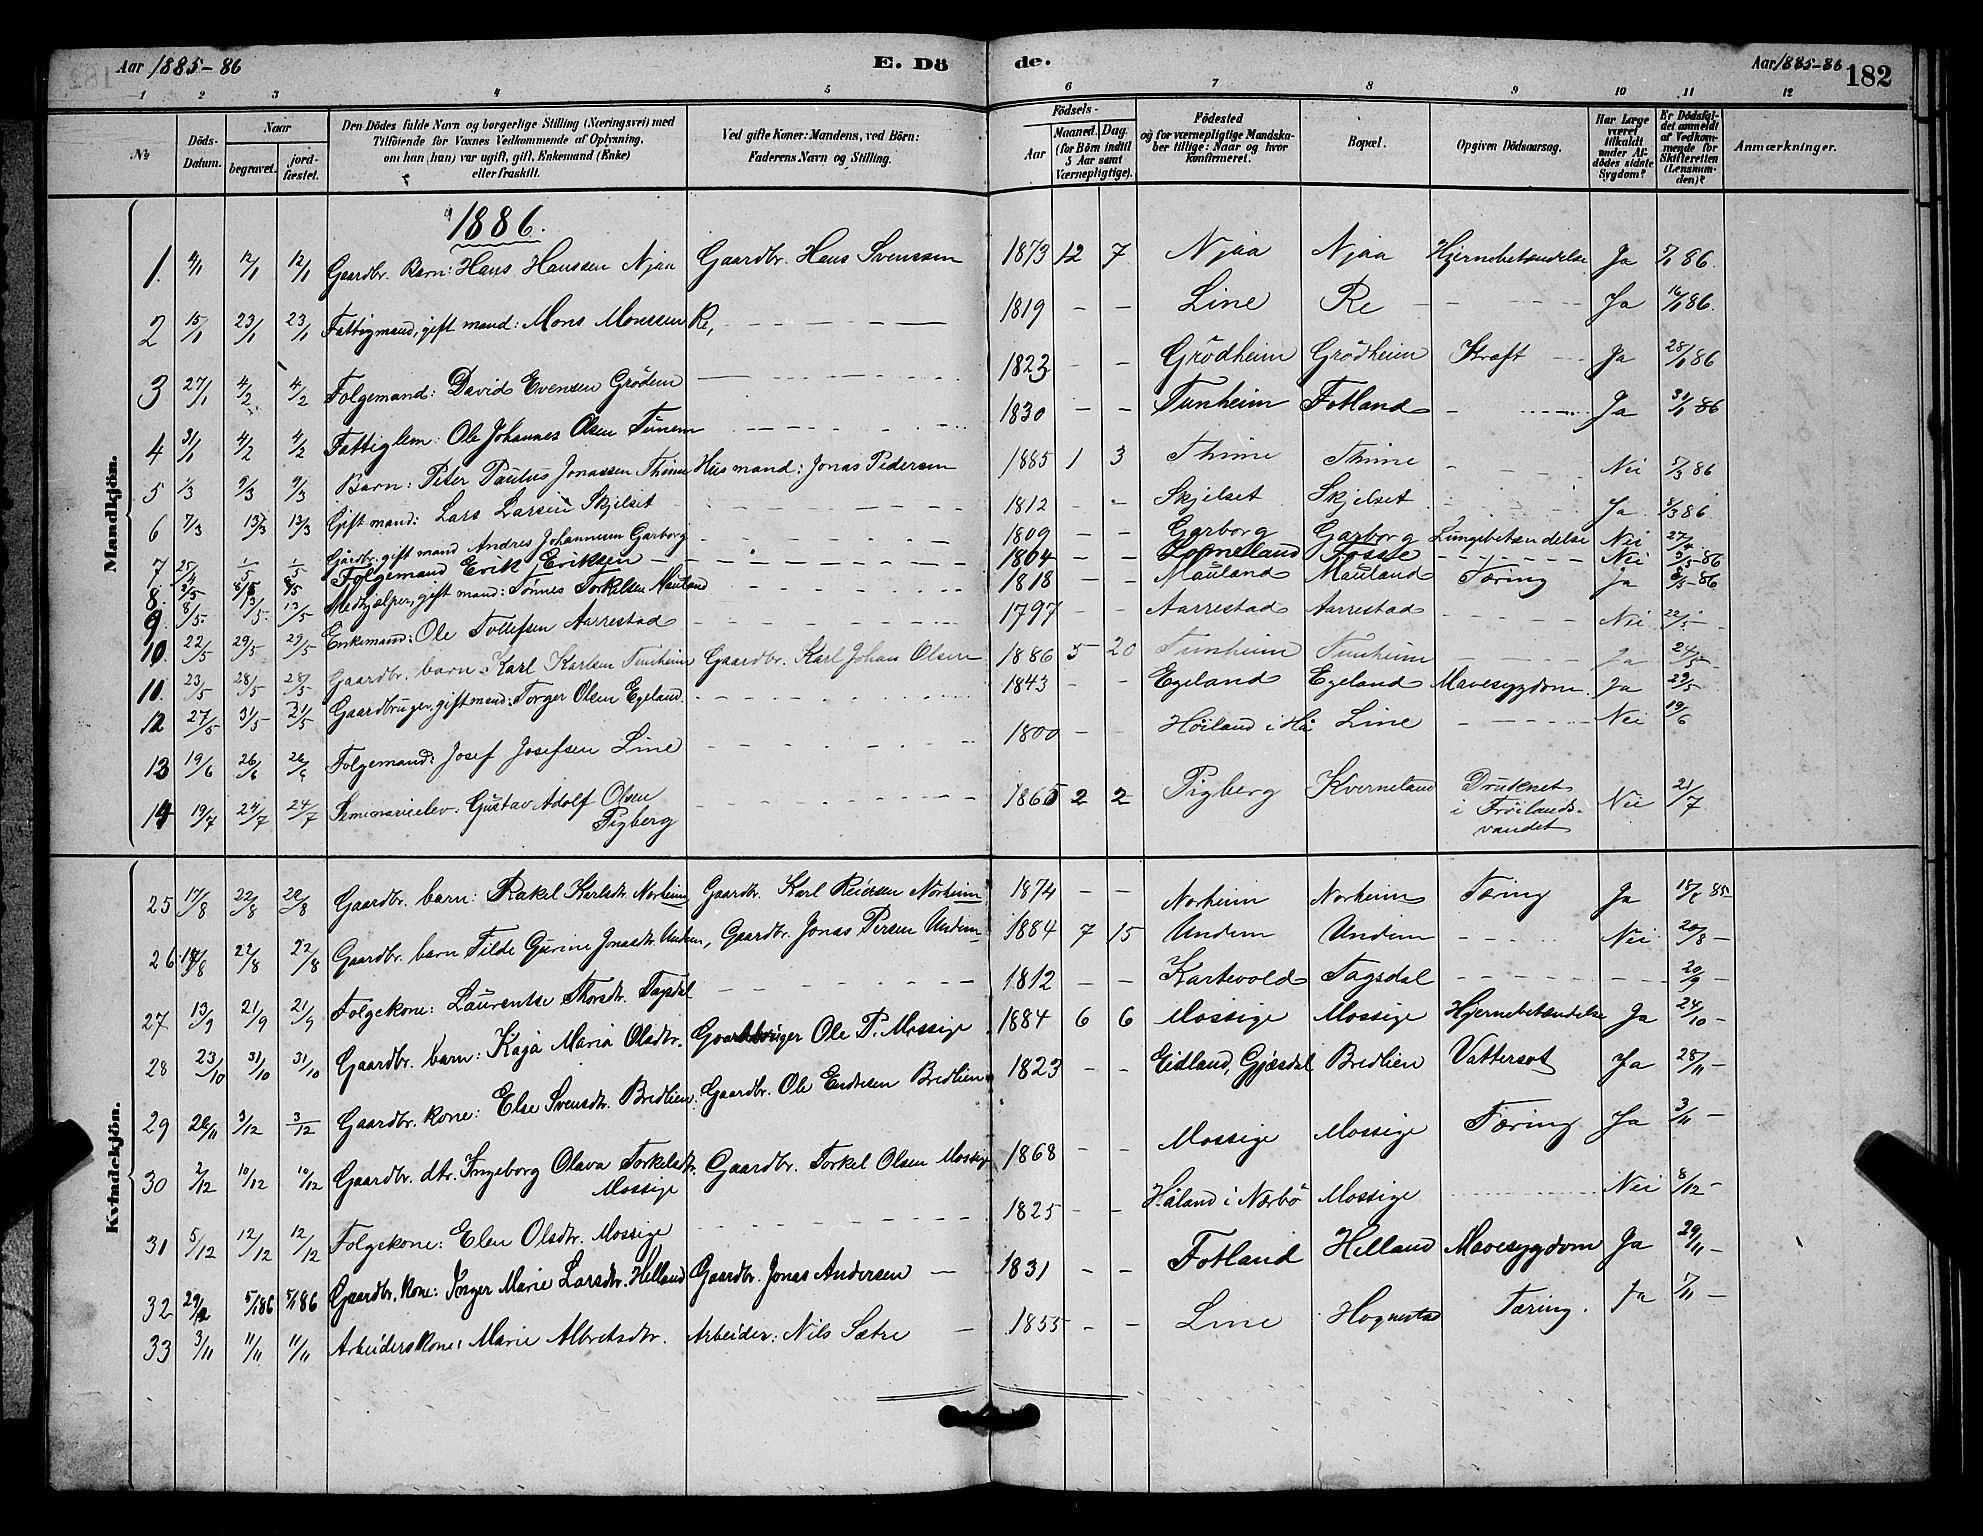 Aar 1885-86 E. Dö de. Aar 1885-86 182
1 2 3 4 5 6 7 8 9 10 11 12
No. Döds-Datum. Naar begravet. jord-fæstet. Den Dödes fulde Navn og borgerlige Stilling (Næringsvei) med Tilföiende for Voxnes Vedkommende af Oplysning, om han (hun) var ugift, gift, Enkemand (Enke) eller fraskilt. Ved gifte Koner: Mandens, ved Börn: Faderens Navn og Stilling. Födsels- Aar Maaned. Dag. (for Börn indtil 5 Aar samt Værnepligtige). Födested og for værnepligtige Mandska-ber tillige: Naar og hvor Konfirmeret. Bopæl. Opgiven Dödsaarsag. Har Læge været tilkaldt under Af-dödes sidste Sygdom? Er Dödsfal-det anmeldt af Vedkom-mende for Skifteretten (Lensman-den)? Anmærkninger.
Mandkjön.
1886.
1. 4/1 12/1 12/1 Gaardbr. Barn: Hans Hanssen Njaa Gaardbr. Hans Svenssen 1873 12 7 Njaa Njaa Hjernebetændelse Ja 5/1 86.
2 15/1 23/1 23/1 Fattigmand, gift mand: Mons Monssen Re, 1819 - - Line Re - Ja 16/1 86.
3 27/1 4/2 4/2 Folgemand: David Evensen Grödem - 1823 - - Grödheim Grödheim Kraft Ja 28/1 86
4 31/1 4/2 4/2 Fattiglem: Ole Johannes Olsen Tunem - 1830 - - Tunheim Fotland - Ja 31/1 86
5 1/3 9/3 9/3 Barn: Peter Paulus Jonassen Thime Husmand: Jonas Pedersen 1885 1 3 Thime Thime - Nei 5/3 86
6 7/3 13/3 13/3 Gift mand: Lars Larsen Skjelset - 1812 - Skjelset Skjelset - Ja 8/3 86
7 25/4 1/5 1/5 Gaardbr. gift mand Andres Johannesen Garborg - 1809 - - Garborg Garborg Lungebetændelse Nei 27/4
8. 3/5 8/5 8/5 Folgemand Erik Eriksen - 1804 - - Fosse - Nei 5-86
9 8/5 13/5 13/5 Medhjælper, gift mand: Tönnes Torkelsen Mauland - 1818 - - Mauland Mauland Tæring Ja 8/5-86
10 22/5 29/5 29/5 Enkemand: Ole Tollefsen Aarrestad - 1797 - - Aarrestad Aarrestad - Nei 22/5 -
11. 23/5 28/5 28/5 Gaardbr. barn: Karl Karlsen Tunheim Gaardbr. Karl Johan Olsen 1886 5 20 Tunheim Tunheim - Ja 24/5 -
12 27/5 31/5 31/5 Gaardbruger, gift mand: Torger Olsen Egeland. - 1843 - - Egeland Egeland Mavesygdom. Ja 29/5
13 19/6 26/6 26/6 Folgemand: Josef Josefsen Line - 1800 - - Höiland i Hå Line - Nei 19/6
14 19/7 24/7 24/7 Seminarieelev: Gustav Adolf Olsen - 1865 2 2 Pigberg Kverneland Druknet Nei 21/7
Pigberg i Fröilands-
vandet
Kvindekjön.
25 17/8 22/8 22/8 Gaardbr. barn: Rakel Karlsdtr. Norheim Gaardbr. Karl Reiersen Norheim 1874 - - Norheim Norheim Tæring Ja 18/8 85
26 17/8 22/8 22/8 Gaardbr. barn Tilde Gurine Jonasdtr. Undem, Gaardbr. Jonas Persen Undem 1884 7 15 Undem Undem - Nei 20/8 -
27 13/9 21/9 21/9 Folgekone: Laurentse Thorsdtr. Tagsdal - 1812 - - Kartevold Tagsdal - - 20/9 -
28 23/10 31/10 31/10 Gaardbr. barn: Kaja Maria Olsdtr. Gaardbruger Ole P. Mossige 1884 6 6 Mossige Mossige Hjernebetændelse Ja 24/10 -
29 26/11 3/12 3/12 Gaardbr. kone: Else Svensdtr. Bredlien: Gaardbr. Ole Endresen Bredlien 1823 - - Eidland, Gjesdal Bredlien Vattersot Ja 28/11 -
30 2/12 10/12 10/12 Gaardbr. dtr. Ingeborg Olava Torkelsdtr. Gaardbr. Torkel Olsen Mossige 1868 - - Mossige Mossige Tæring Ja 3/11 -
Mossige
31 5/12 12/12 12/12 Folgekone: Elen Olsdtr. Mossige - 1825 - - Håland i Nærbö Mossige - Nei 8/12 -
32 5/1 86 5/1 86 Gaardbr. kone: Inger Marie Larsdtr. Helland Gaardbr. Jonas Andersen - 1831 - - Fotland Helland Mavesygdom Ja 29/11 -
33 3/11 11/11 11/11 Arbeiderskone: Marie Albretsdtr. Arbeider: Nils Sætre - 1855 - - Line Hognestad Tæring. Ja 7/11 -